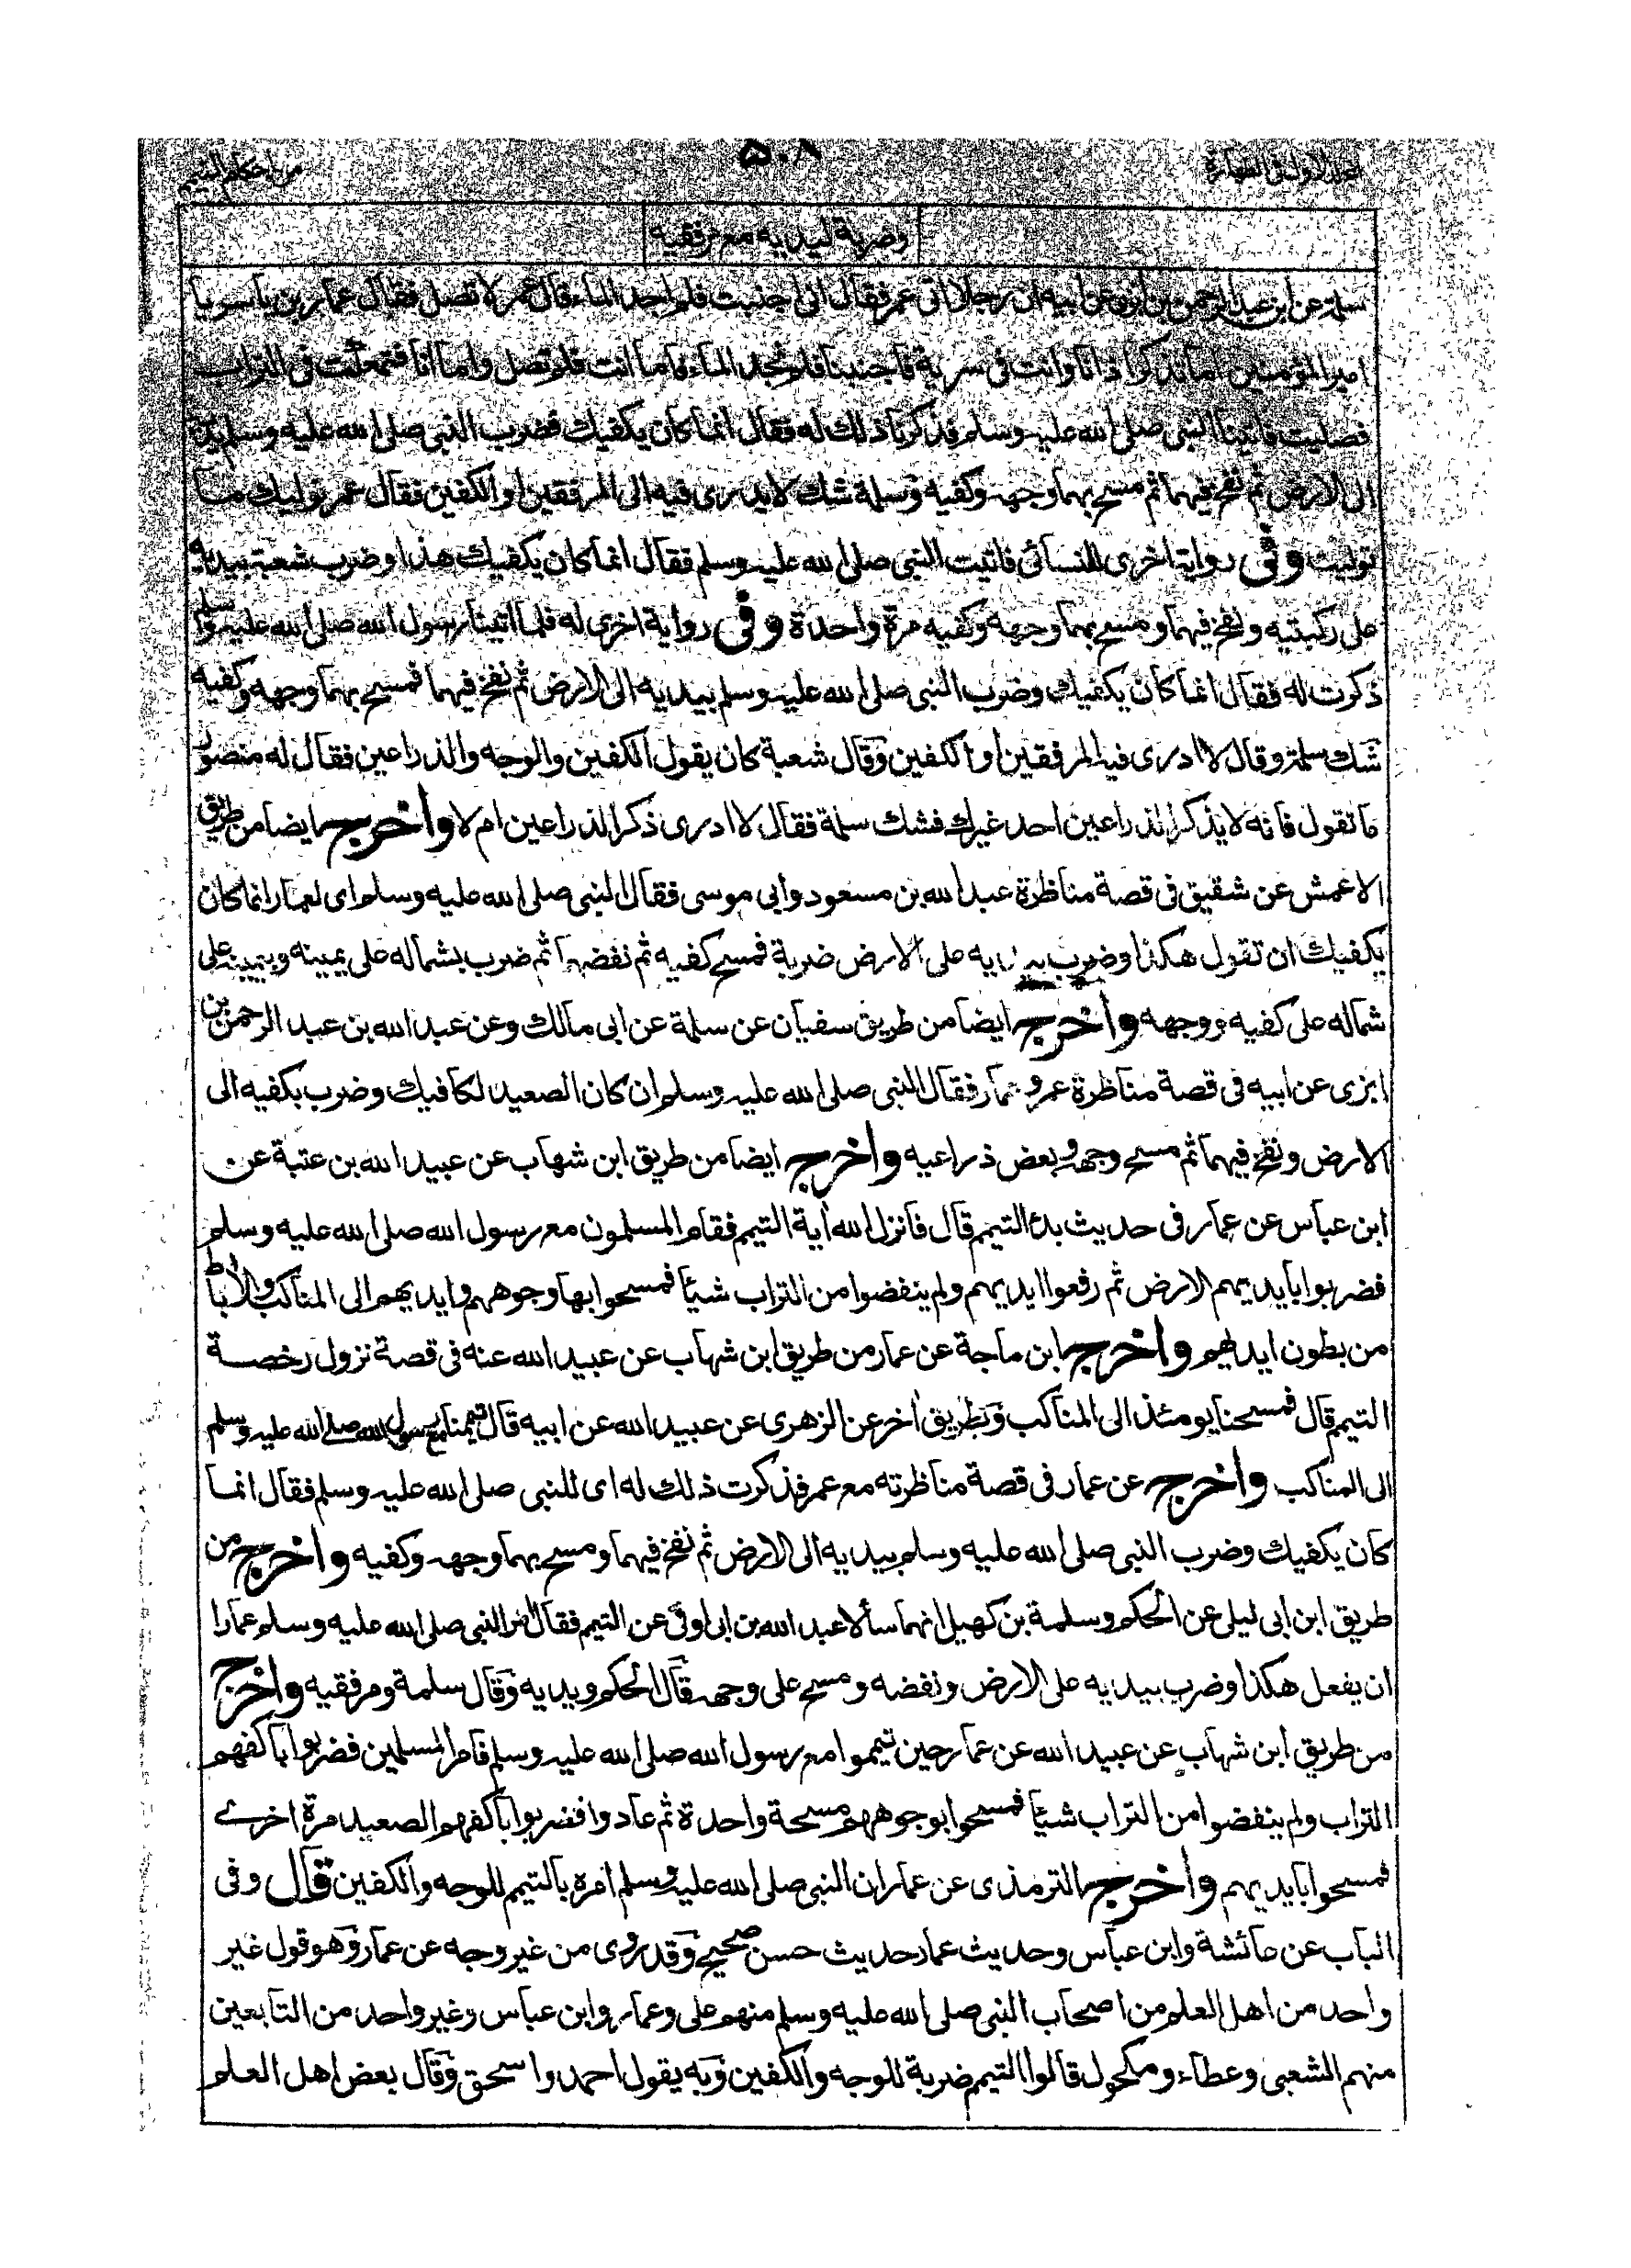 المجلد الاول فى الطهارة ٥٠٨ من احكام التيمم
وضربة ليديه مع مرفقيه
سلمة عن ابن عبد الرحمن بن ابزى عن ابيه ان رجلا اتى عمر فقال انى اجنبت فلم اجد الماء قال عمر لا تصل فقال عمار بن ياسر يا
امير المؤمنين اما تذكر اذ انا وانت فى سرية فاجنبنا فلم نجد الماء فاما انت فلم تصل واما انا فتمعكت فى التراب
فصليت فاتينا النبى صلى الله عليه وسلم فذكرنا ذلك له فقال انما كان يكفيك فضرب النبى صلى الله عليه وسلم يديه
الى الارض ثم نفخ فيهما ثم مسح بهما وجهه وكفيه وسلمة شك لا يدرى فيه الى المرفقين او الكفين فقال عمر نوليك ما
توليت وفى رواية اخرى للنسائى فاتيت النبى صلى الله عليه وسلم فقال انما كان يكفيك هذا وضرب شعبة بيديه
على ركبتيه ونفخ فيهما ومسح بهما وجهه وكفيه مرة واحدة وفى رواية اخرى له فلما اتينا رسول الله صلى الله عليه وسلم
ذكرت له فقال انما كان يكفيك وضرب النبى صلى الله عليه وسلم بيديه الى الارض ثم نفخ فيهما فمسح بهما وجهه وكفيه
شك سلمة وقال لا ادرى فيه المرفقين او الكفين وقال شعبة كان يقول الكفين والوجه والذراعين فقال له منصور
ما تقول فانه لا يذكر الذراعين احد غيرك فشك سلمة فقال لا ادرى ذكر الذراعين ام لا واخرج ايضا من طريق
الاعمش عن شقيق فى قصة مناظرة عبد الله بن مسعود وابى موسى فقال النبى صلى الله عليه وسلم اى لعمار انما كان
يكفيك ان تقول هكذا وضرب بيديه على الارض ضربة فمسح كفيه ثم نفضهما ثم ضرب بشماله على يمينه وبيمينه على
شماله على كفيه ووجهه واخرج ايضا من طريق سفيان عن سلمة عن ابى مالك وعن عبد الله بن عبد الرحمن بن
ابزى عن ابيه فى قصة مناظرة عمر وعمار فقال النبى صلى الله عليه وسلم ان كان الصعيد لكافيك وضرب بكفيه الى
الارض ونفخ فيهما ثم مسح وجهه وبعض ذراعيه واخرج ايضا من طريق ابن شهاب عن عبيد الله بن عتبة عن
ابن عباس عن عمار فى حديث بدء التيمم قال فانزل الله اية التيمم فقام المسلمون مع رسول الله صلى الله عليه وسلم
فضربوا بايديهم الارض ثم رفعوا ايديهم ولم ينفضوا من التراب شيئا فمسحوا بها وجوههم وايديهم الى المناكب والاباط
من بطون ايديهم واخرج ابن ماجة عن عمار من طريق ابن شهاب عن عبيد الله عنه فى قصة نزول رخصة
التيمم قال فمسحنا يومئذ الى المناكب وبطريق اخر عن الزهرى عن عبيد الله عن ابيه قال تيممنا مع رسول الله صلى الله عليه وسلم
الى المناكب واخرج عن عمار فى قصة مناظرته مع عمر فذكرت ذلك له اى للنبى صلى الله عليه وسلم فقال انما
كان يكفيك وضرب النبى صلى الله عليه وسلم بيديه الى الارض ثم نفخ فيهما ومسح بهما وجهه وكفيه واخرج من
طريق ابن ابى ليلى عن الحكم وسلمة بن كهيل انهما سألا عبد الله بن ابى اوفى عن التيمم فقال امر النبى صلى الله عليه وسلم عمارا
ان يفعل هكذا وضرب بيديه على الارض ونفضه ومسح على وجهه قال الحكم ويديه وقال سلمة ومرفقيه واخرج
من طريق ابن شهاب عن عبيد الله عن عمار حين تيمموا مع رسول الله صلى الله عليه وسلم فامر المسلمين فضربوا باكفهم
التراب ولم ينفضوا من التراب شيئا فمسحوا بوجوههم مسحة واحدة ثم عادوا فضربوا باكفهم الصعيد مرة اخرى
فمسحوا بايديهم واخرج الترمذى عن عمار ان النبى صلى الله عليه وسلم امره بالتيمم للوجه والكفين قال وفى
الباب عن عائشة وابن عباس وحديث عمار حديث حسن صحيح وقد روى من غير وجه عن عمار وهو قول غير
واحد من اهل العلم من اصحاب النبى صلى الله عليه وسلم منهم على وعمار وابن عباس وغير واحد من التابعين
منهم الشعبى وعطاء ومكحول قالوا التيمم ضربة للوجه والكفين وبه يقول احمد واسحق وقال بعض اهل العلم